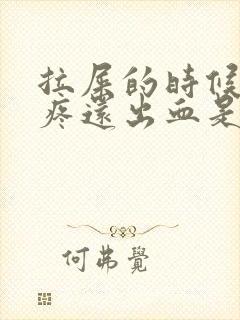 拉屎的時候
疼還出血是
何弗覺